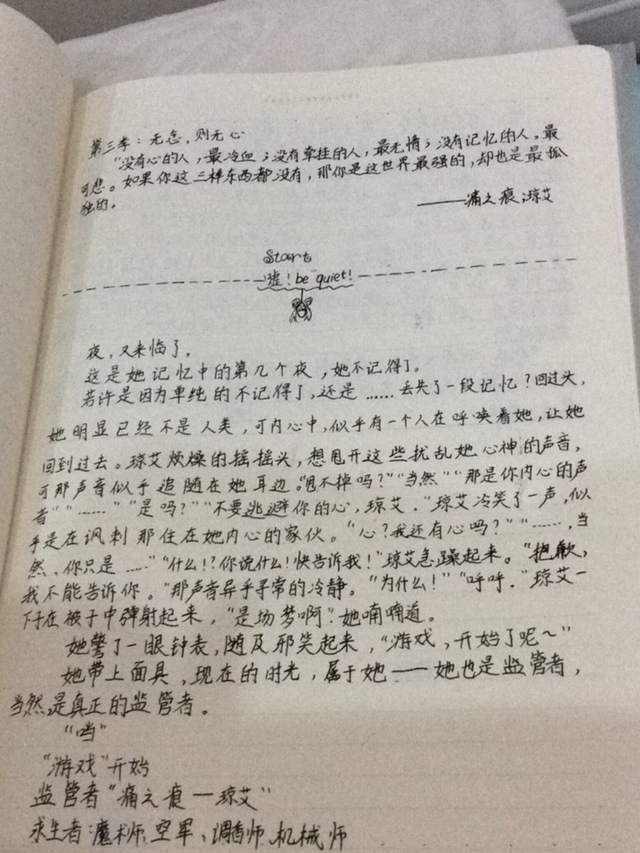 第三季：无念，则无心
“没有心的人，最冷血；没有牵挂的人，最无情；没有记忆的人，最
可悲。如果你这三样东西都没有，那你是这世界最强的，却也是最孤
独的。
——痛之痕；琼艾
Start
嘘！be quiet！
夜，又来临了。
这是她记忆中的第几个夜，她不记得了。
若许是因为单纯的不记得了，还是……丢失了一段记忆？回过头，
她明显已经不是人类，可内心中，似乎有一个人在呼唤着她，让她
回到过去。琼艾烦燥的摇摇头，想甩开这些扰乱她心神的声音，
可那声音似乎追随在她耳边。“甩不掉吗？”“当然”“那是你内心的声
音”“……”“是吗？”“不要逃避你的心，琼艾。”琼艾冷笑了一声，似
乎是在讽刺那住在她内心的家伙。“心？我还有心吗？”“……，当
然，你只是……”“什么！？你说什么！快告诉我！”琼艾急躁起来。“抱歉，
我不能告诉你。”那声音异乎寻常的冷静。“为什么！”“呼呼。”琼艾一
下子在被子中弹射起来，“是场梦啊”她喃喃道。
她瞥了一眼钟表，随及邪笑起来，“游戏，开始了呢～”
她带上面具，现在的时光，属于她——她也是监管者，
当然是真正的监管者。
“哟”
“游戏”开始
监管者“痛之痕—琼艾”
求生者：魔术师、空军、调香师、机械师